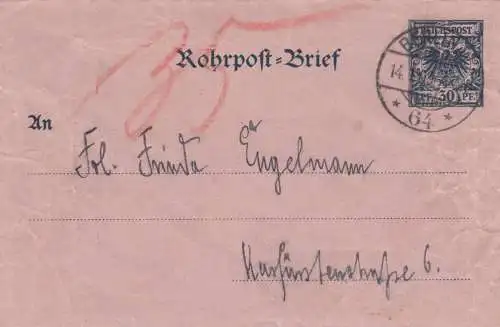 35
Rohrpost-Brief
REICHSPOST
14.
50 PF
* 64 *
An
Frl. Frieda Engelmann
Kurfürstenstraße 6.